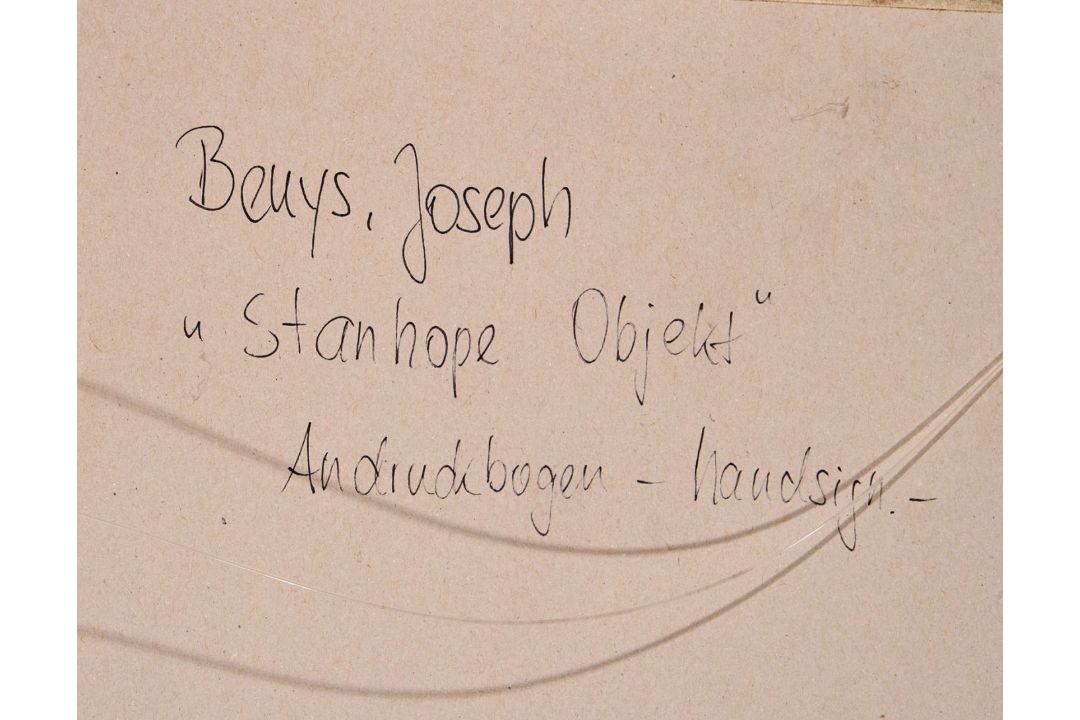 Beuys, Joseph
"Stanhope Objekt"
Andruckbogen - handsign. -